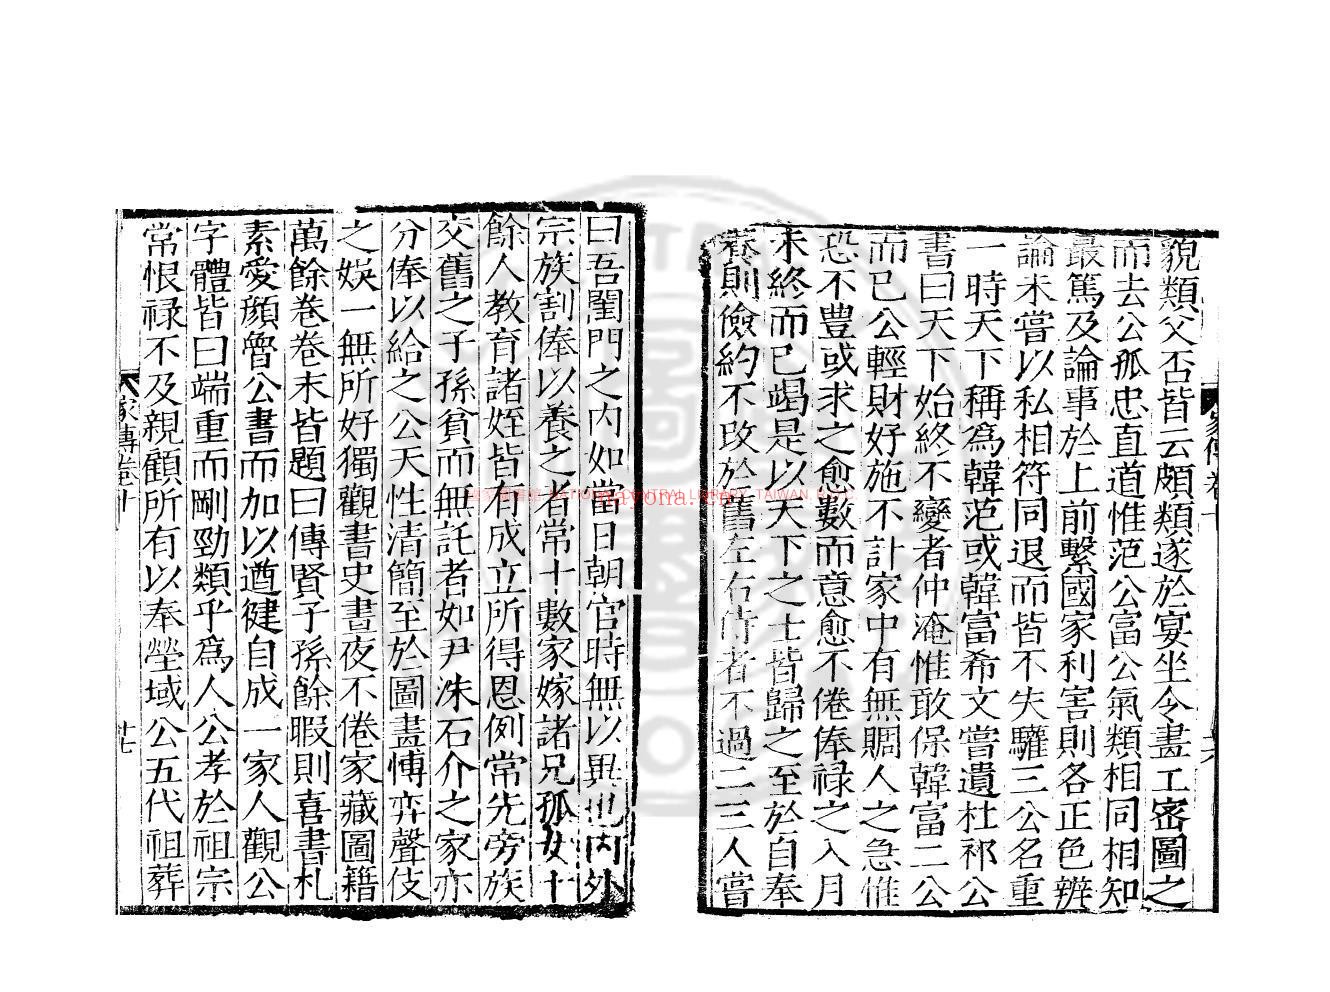 貌類父否皆云頗類遂於宴坐令畫工密圖之
而去公孤忠直道惟范公富公氣類相同相知
最篤及論事於上前繫國家利害則各正色辨
論未嘗以私相符同退而皆不失驩三公名重
一時天下稱爲韓范或韓富希文嘗遺杜祁公
書曰天下始終不變者仲淹惟敢保韓富二公
而已公輕財好施不計家中有無賙人之急惟
恐不豊或求之愈數而意愈不倦俸禄之入月
未終而已竭是以天下之士皆歸之至於自奉
養則儉約不改於舊左右侍者不過二三人嘗
家傳卷十
曰吾閨門之内如當日朝官時無以異也内外
宗族割俸以養之者常十數家嫁諸兄孤女十
餘人教育諸姪皆有成立所得恩例常先旁族
交舊之子孫貧而無託者如尹洙石介之家亦
分俸以給之公天性清簡至於圖畫愽弈聲伎
之娱一無所好獨觀書史晝夜不倦家藏圖籍
萬餘卷卷末皆題曰傳賢子孫餘暇則喜書札
素愛顔魯公書而加以遒健自成一家人觀公
字體皆曰端重而剛勁類乎爲人公孝於祖宗
常恨禄不及親顧所有以奉塋域公五代祖葬
家傳卷十
廿七
國家圖書館 NATIONAL CENTRAL LIBRARY, TAIWAN R.O.C.